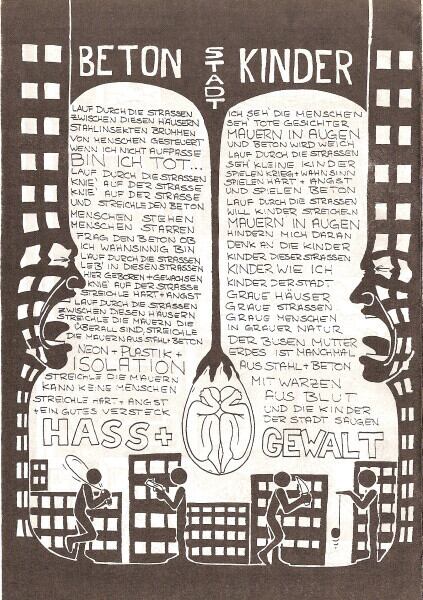 BETON STADT KINDER
LAUF DURCH DIE STRASSEN
ZWISCHEN DIESEN HÄUSERN
STAHLINSEKTEN BRUMMEN
VON MENSCHEN GESTEUERT
WENN ICH NICHT AUFPASSE
BIN ICH TOT...
LAUF DURCH DIE STRASSEN
KNIE' AUF DER STRASSE
KNIE' AUF DER STRASSE
UND STREICHLE DEN BETON
MENSCHEN STEHEN
MENSCHEN STARREN
FRAG DEN BETON OB
ICH WAHNSINNIG BIN
LAUF DURCH DIE STRASSEN
LEB IN DIESEN STRASSEN
HIER GEBOREN + GEWACHSEN
KNIE' AUF DER STRASSE
STREICHLE HART + ANGST
LAUF DURCH DIE STRASSEN
ZWISCHEN DIESEN HÄUSERN
STREICHLE DIE MAUERN DIE
ÜBERALL SIND, STREICHLE
DIE MAUERN AUS STAHL + BETON
NEON + PLASTIK +
ISOLATION
STREICHLE DIE MAUERN
KANN KEINE MENSCHEN
STREICHLE HART + ANGST
+ EIN GUTES VERSTECK
ICH SEH' DIE MENSCHEN
SEH' TOTE GESICHTER
MAUERN IN AUGEN
UND BETON WIRD WEICH
LAUF DURCH DIE STRASSEN
SEH' KLEINE KINDER
SPIELEN KRIEG + WAHNSINN
SPIELEN HART + ANGST
UND SPIELEN BETON
LAUF DURCH DIE STRASSEN
WILL KINDER STREICHELN
MAUERN IN AUGEN
HINDERN MICH DARAN
DENK AN DIE KINDER
KINDER DIESER STRASSEN
KINDER WIE ICH
KINDER DER STADT
GRAUE HÄUSER
GRAUE STRASSEN
GRAUE MENSCHEN
IN GRAUER NATUR
DER BUSEN MUTTER
ERDES IST MANCHMAL
AUS STAHL + BETON
MIT WARZEN
AUS BLUT
UND DIE KINDER
DER STADT SAUGEN
HASS + GEWALT